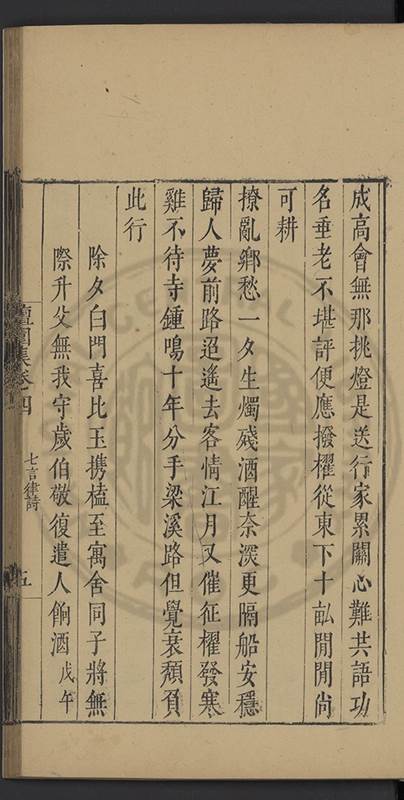 成高會無那挑燈是送行家累關心難共語功
名垂老不堪評便應撥櫂從東下十畝閒閒尚
可耕
撩亂鄉愁一夕生燭殘酒醒奈深更隔船安穩
歸人夢前路迢遙去客情江月又催征櫂發寒
雞不待寺鍾鳴十年分手梁溪路但覺衰顏負
此行
除夕白門喜比玉携榼至寓舍同子將無
際升父無我守歲伯敬復遣人餉酒 戊午
集卷四
七言律詩
五